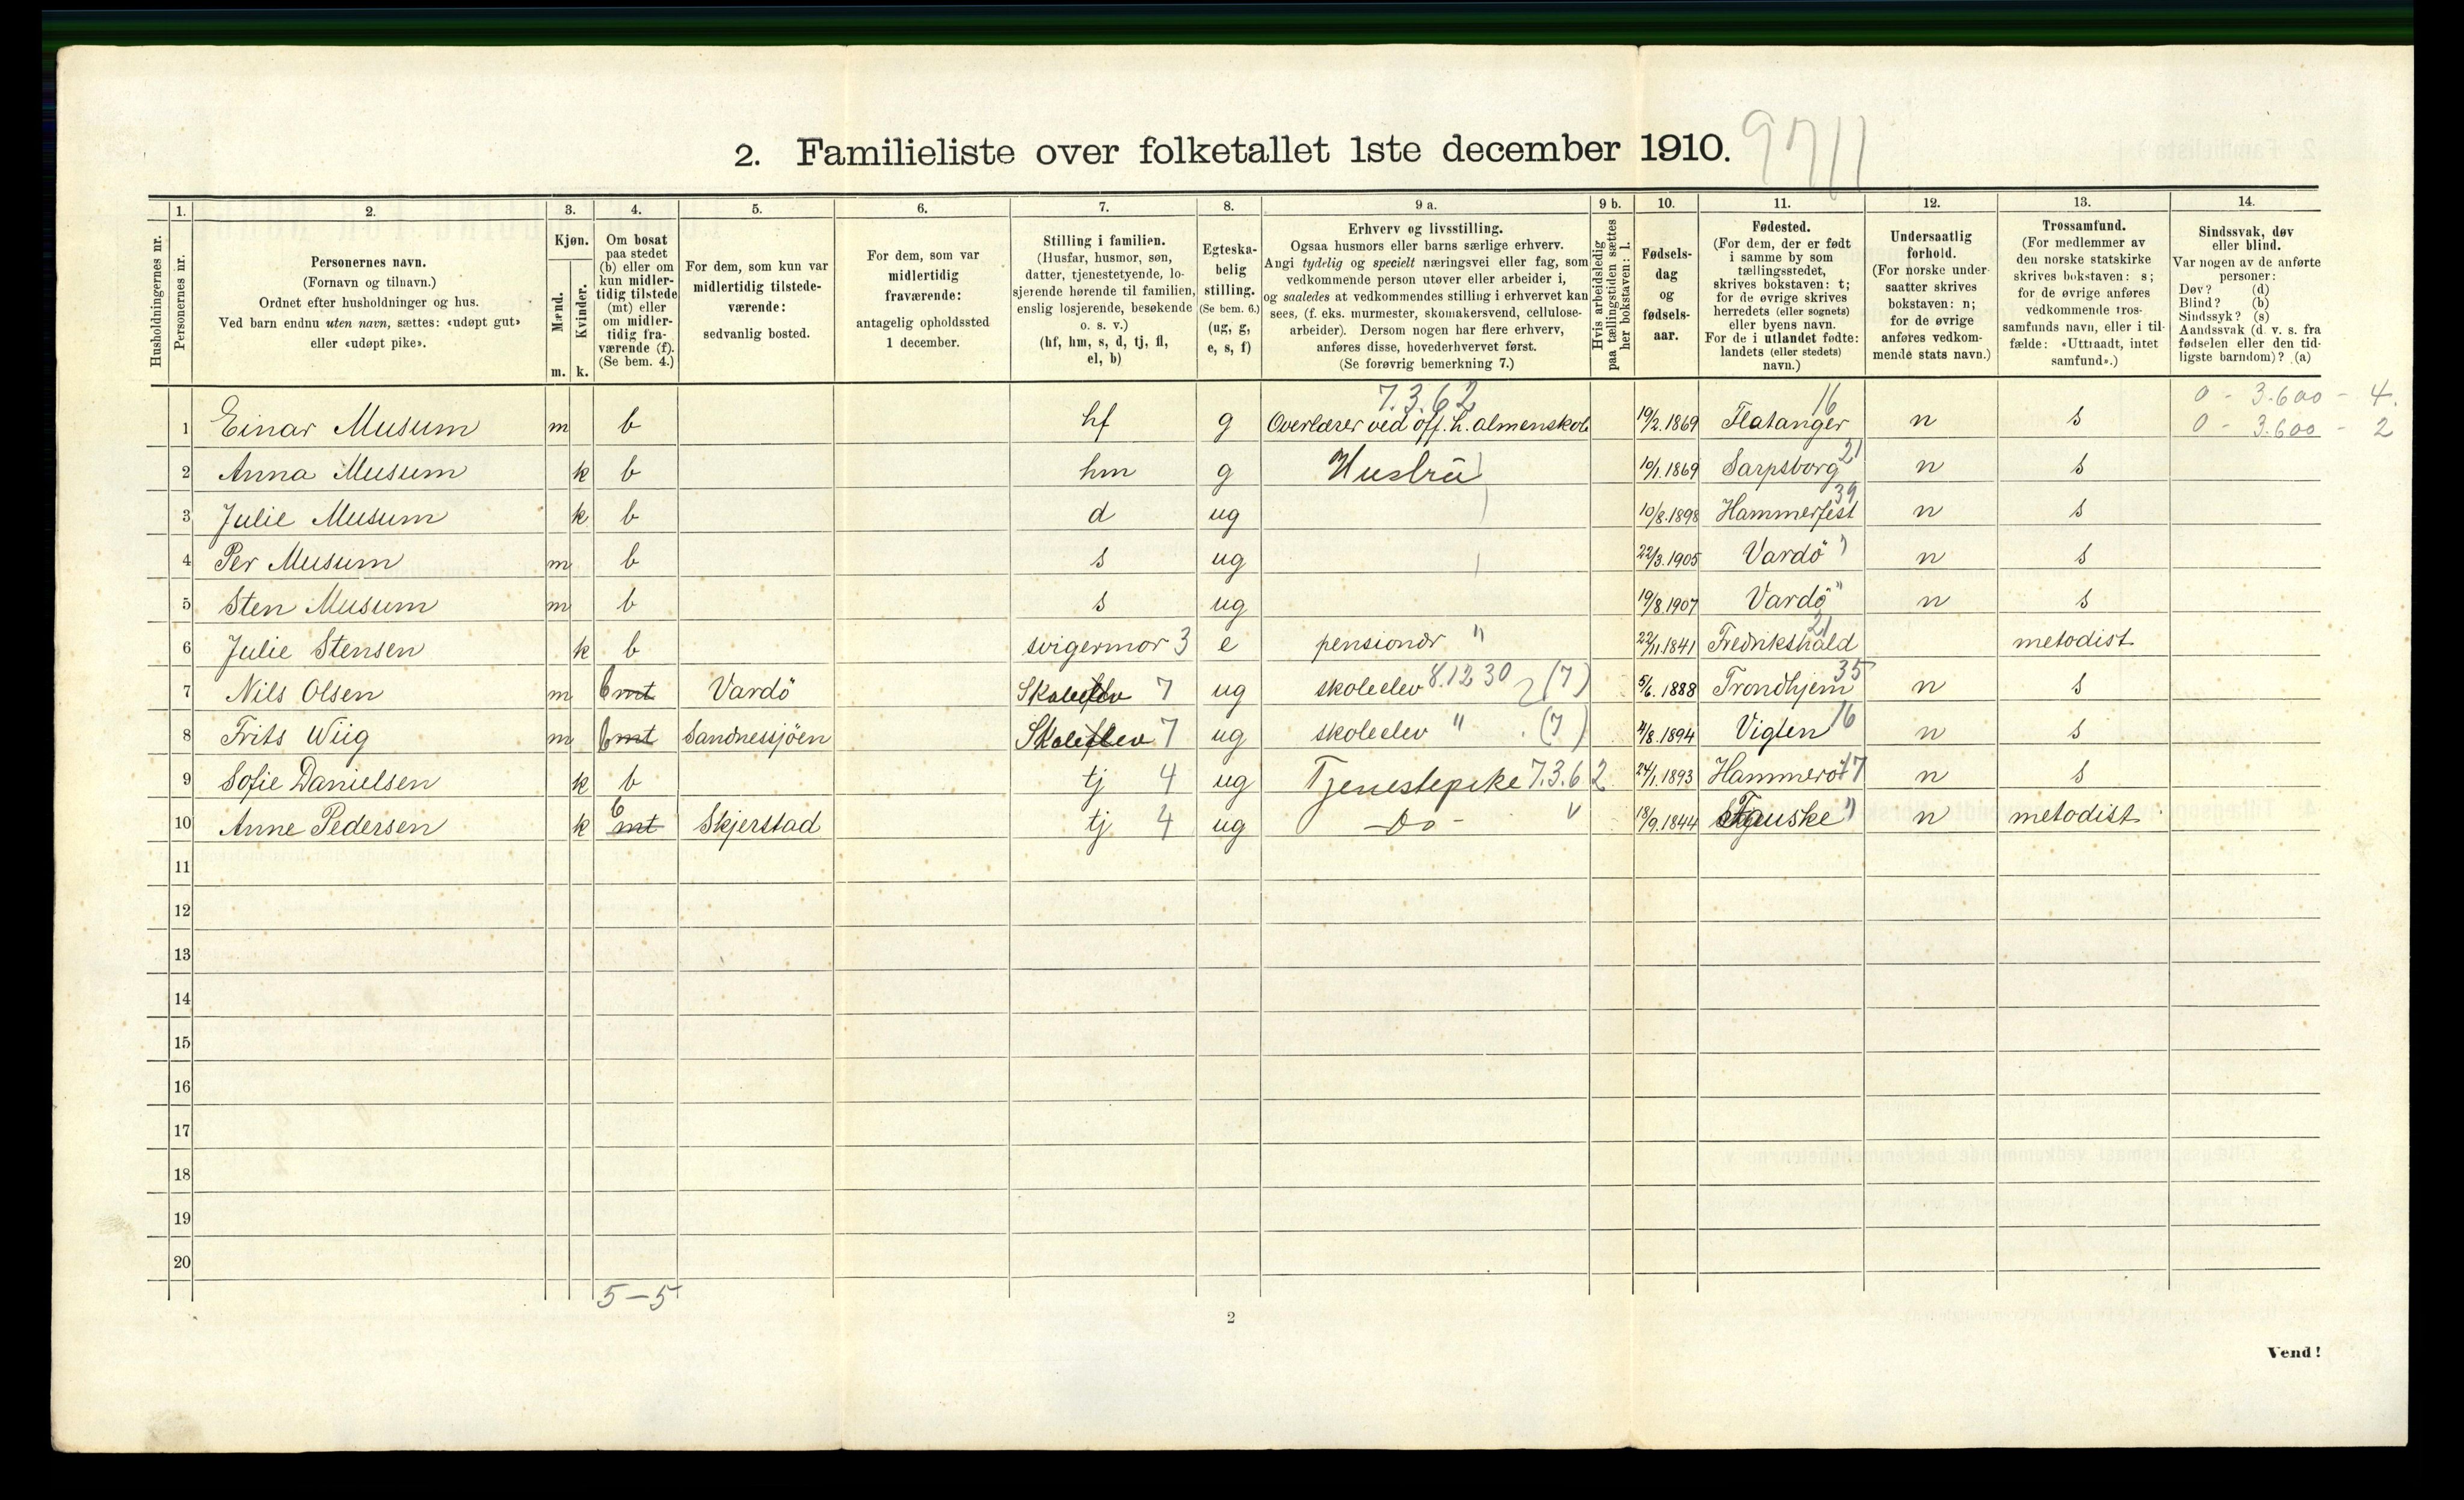 2. Familieliste over folketallet 1ste december 1910. 9711
1. 2. 3. 4. 5. 6. 7. 8. 9 a. 9 b. 10. 11. 12. 13. 14.
Husholdningernes nr.
Personernes nr.
Personernes navn.
(Fornavn og tilnavn.)
Ordnet efter husholdninger og hus.
Ved barn endnu uten navn, sættes: «udøpt gut»
eller «udøpt pike».
Kjøn.
Mænd.
Kvinder.
m. k.
Om bosat
paa stedet
(b) eller om
kun midler-
tidig tilstede
(mt) eller
om midler-
tidig fra-
værende (f).
(Se bem. 4.)
For dem, som kun var
midlertidig tilstede-
værende:
sedvanlig bosted.
For dem, som var
midlertidig
fraværende:
antagelig opholdssted
1 december.
Stilling i familien.
(Husfar, husmor, søn,
datter, tjenestetyende, lo-
sjerende hørende til familien,
enslig losjerende, besøkende
o. s. v.)
(hf, hm, s, d, tj, fl,
el, b)
Egteska-
belig
stilling.
(Se bem. 6.)
(ug, g,
e, s, f)
Erhverv og livsstilling.
Ogsaa husmors eller barns særlige erhverv.
Angi tydelig og specielt næringsvei eller fag, som
vedkommende person utøver eller arbeider i,
og saaledes at vedkommendes stilling i erhvervet kan
sees, (f. eks. murmester, skomakersvend, cellulose-
arbeider). Dersom nogen har flere erhverv,
anføres disse, hovederhvervet først.
(Se forøvrig bemerkning 7.)
Hvis arbeidsledig
paa tællingstiden sættes
her bokstaven: l.
Fødsels-
dag
og
fødsels-
aar.
Fødested.
(For dem, der er født
i samme by som
tællingsstedet,
skrives bokstaven: t;
for de øvrige skrives
herredets (eller sognets)
eller byens navn.
For de i utlandet fødte:
landets (eller stedets)
navn.)
Undersaatlig
forhold.
(For norske under-
saatter skrives
bokstaven: n;
for de øvrige
anføres vedkom-
mende stats navn.)
Trossamfund.
(For medlemmer av
den norske statskirke
skrives bokstaven: s;
for de øvrige anføres
vedkommende tros-
samfunds navn, eller i til-
fælde: «Uttraadt, intet
samfund».)
Sindssvak, døv
eller blind.
Var nogen av de anførte
personer:
Døv? (d)
Blind? (b)
Sindssyk? (s)
Aandssvak (d. v. s. fra
fødselen eller den tid-
ligste barndom)? (a)
7.3.62 16 0 - 3.600 - 4.
1 Einar Musum m b hf g Overlærer ved off. h. almenskole 19/2.1869 Flatanger n s 0 - 3.600 - 2
2 Anna Musum k b hm g Hustru 10/1.1869 Sarpsborg 21 n s
3 Julie Musum k b d ug 10/8.1898 Hammerfest 39 n s
4 Per Musum m b s ug 22/3.1905 Vardö " n s
5 Sten Musum m b s ug 19/8.1907 Vardö " n s
6 Julie Stensen k b svigermor 3 e pensionær " 22/11.1841 Fredrikshald 21 metodist
7 Nils Olsen m b mt Vardö Skoleelev 7 ug skoleelev 8.12 30 (7) 5/6.1888 Trondhjem 35 n s
8 Frits Wiig m b mt Sandnessjöen Skoleelev 7 ug skoleelev " (7) /8.1894 Vigten 16 n s
9 Sofie Danielsen k b tj 4 ug Tjenestepike 7.3.62 24/1.1893 Hammerö 17 n s
10 Anne Pedersen k b mt Skjerstad tj 4 ug Do - " 18/9.1844 Fauske " n metodist
11
12
13
14
15
16
17
18
19
20
5-5
2
Vend!